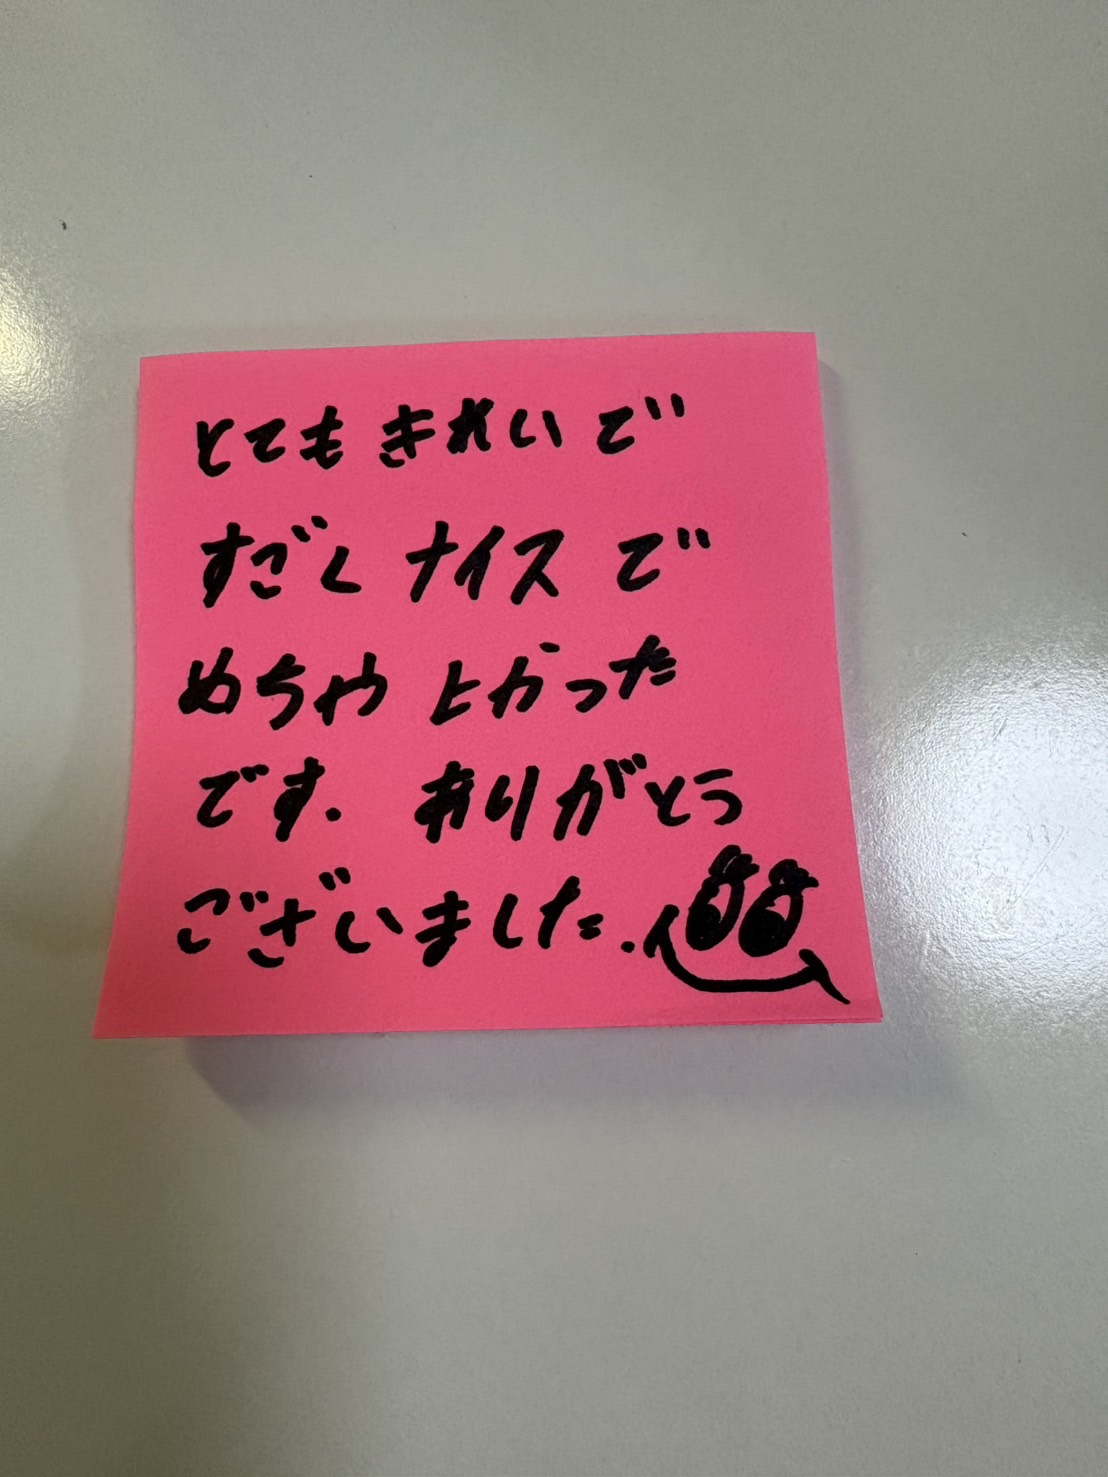 とても きれい で
すごく ナイス で
めちゃ よかった
です. ありがとう
ございました.